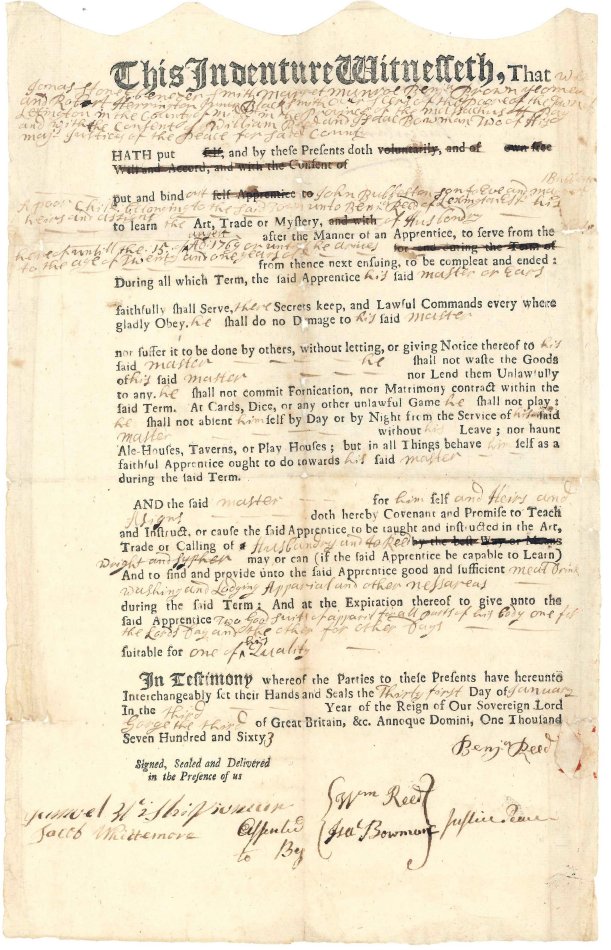 This Indenture Witnesseth, That We
Jonas Stone Ebenezer Smith Marret Munroe Benj Brown yeomen
and Robert Herrington Blacksmith Over Seers of the Poor of the Town
Lexington in the County of in the Province of the Bay
and with the Consent of William Reed and Isaac Bowman Two of His
maj Justices of the Peace for Said County
HATH put self, and by these Presents doth voluntarily, and of own free
Will and Accord, and with the Consent of
put and bind out self Apprentice to John
A poor Child belonging to the Said Town unto Benj Reed of Lexington his
heirs and assigns
to learn the Art, Trade or Mystery, and with of Husbandry
after the Manner of an Apprentice, to serve from the
hereof untill the 15 of 1769 or until he arives for and during the Term of
to the age of Twenty and one years
from thence next ensuing, to be compleat and ended:
During all which Term, the said Apprentice his said master or Ears
faithfully shall Serve, there Secrets keep, and Lawful Commands every where
gladly Obey. he shall do no Damage to his said master
nor suffer it to be done by others, without letting, or giving Notice thereof to his
said master he shall not waste the Goods
of his said master nor Lend them Unlawfully
to any. he shall not commit Fornication, nor Matrimony contract within the
said Term. At Cards, Dice, or any other unlawful Game he shall not play:
he shall not absent him self by Day or by Night from the Service of his said
master without his Leave; nor haunt
Ale-Houses, Taverns, or Play Houses; but in all Things behave him self as a
faithful Apprentice ought to do towards his said master
during the said Term.
AND the said master for him self and Heirs and
Asigns doth hereby Covenant and Promise to Teach
and Instruct, or cause the said Apprentice to be taught and instructed in the Art,
Trade or Calling of a Husbandry and to Reed by the best Way or Means
Wright and Sypher may or can (if the said Apprentice be capable to Learn)
And to find and provide unto the said Apprentice good and sufficient meat Drink
washing and Lodging Apparial and other nessareas
during the said Term; And at the Expiration thereof to give unto the
said Apprentice Two Good suits of apparil for all parts of his body one for
the Lords Day and the other for other Days
suitable for one of his Quality
In Testimony whereof the Parties to these Presents have hereunto
Interchangeably set their Hands and Seals the Thirty first Day of January
In the third Year of the Reign of Our Sovereign Lord
Gorge the third of Great Britain, &c. Annoque Domini, One Thousand
Seven Hundred and Sixty 3
Benja Reed
Signed, Sealed and Delivered
in the Presence of us
Samuel
Jacob Whittemore
to By
Wm Reed
Isac Bowman
Justice Peace